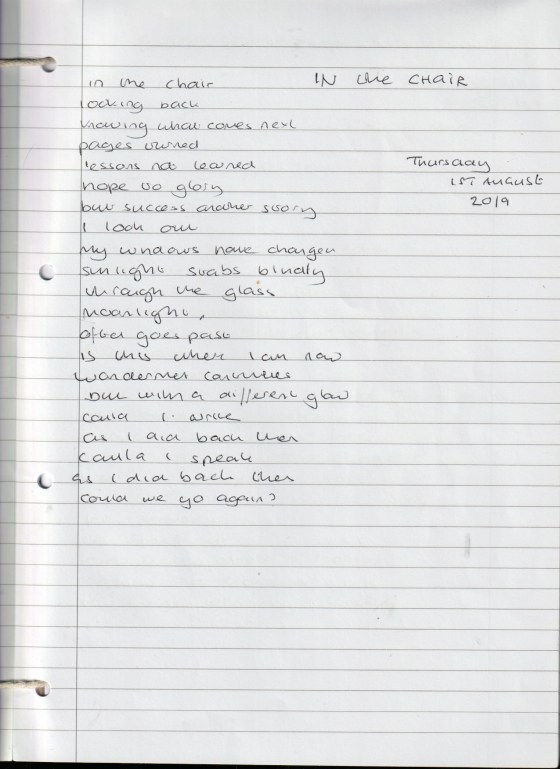 IN the CHAIR
in the chair
looking back
knowing what comes next
pages turned
lessons not learned
Thursday
1ST AUGUST
2019
hope to glory
but success another story
I look out
My windows have changed
sunlight stabs blindly
through the glass
Moonlight,
often goes past
is this where I am now
wonderment continues
but with a different glow
could I write
as I did back then
Could I speak
as I did back then
could we go again?